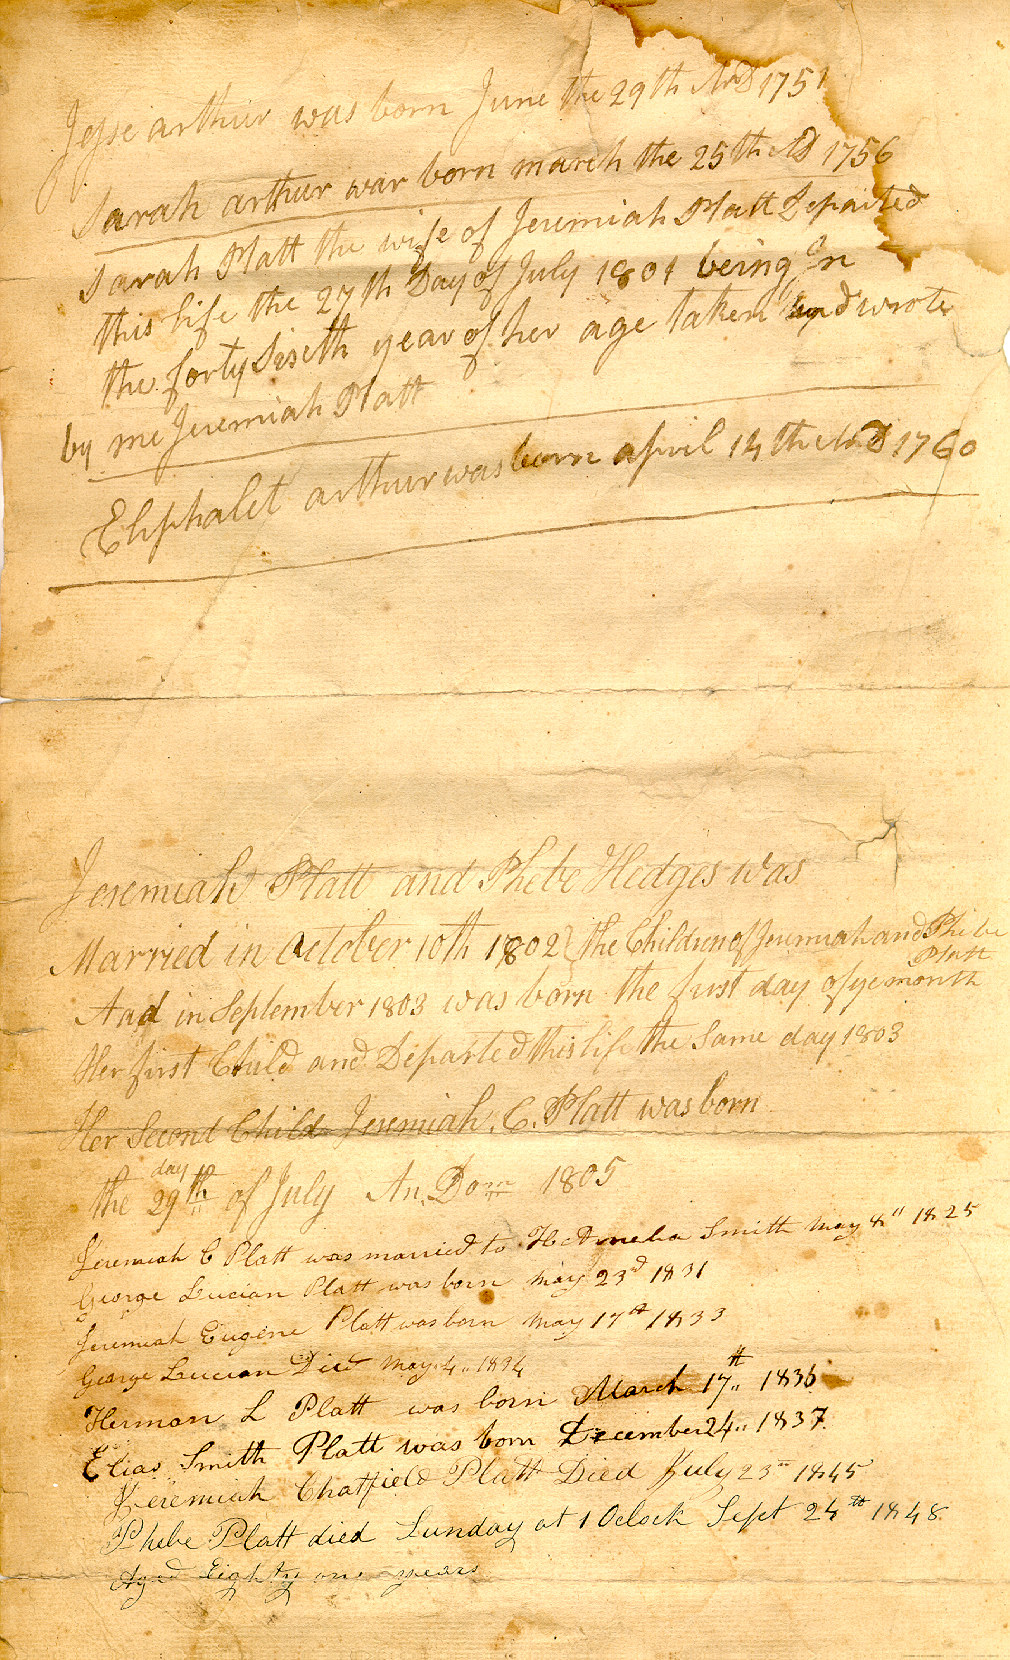 Jesse arthur was born June the 29th AnD 1751
Sarah arthur war born march the 25th AD 1756
Sarah Platt the wife of Jeremiah Platt Departed
this life the 27th Day of July 1801 being In
the forty Sixth year of her age taken and wrote
by me Jeremiah Platt
Eliphalet arthur was born april 14th AnD 1760
Jeremiah Platt and Phebe Hedges was
Married in October 10th 1802 } the Children of Jeremiah and Phebe
Platt
And in September 1803 was born the first day of ye month
Her first Child and Departed this life the Same day 1803
Her Second Child Jeremiah. C. Platt was born
the 29th day of July An. Dom 1805
Jeremiah C Platt was married to Smith May 8" 1825
George Lucian Platt was born May 23d 1831
Jeremiah Eugene Platt was born May 17th 1833
George Lucian Died May. 4.. 1834
Herman L Platt was born March 17th.. 1836
Elias Smith Platt was born December 24.. 1837.
Jeremiah Chatfield Platt Died July 23" 1845
Phebe Platt died Sunday at 1 Oclock Sept 24th 1848.
Aged Eighty one years